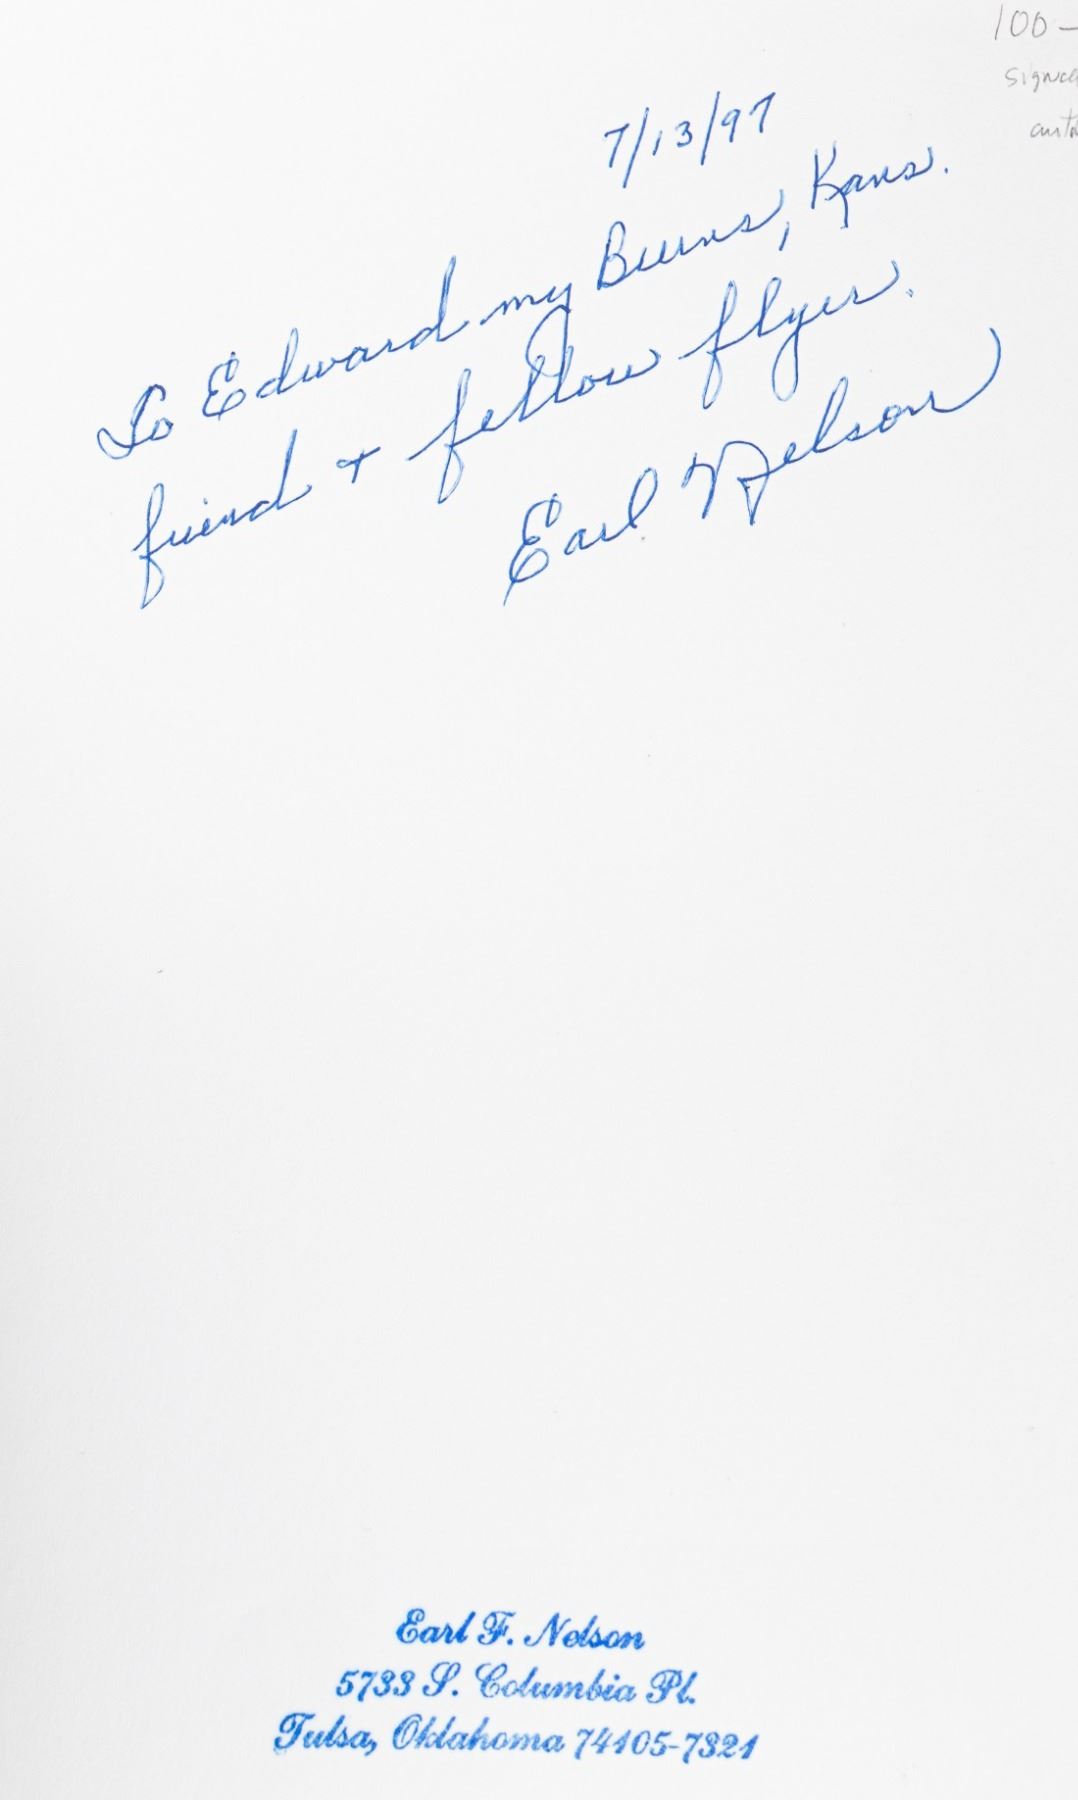 100 –
7/13/97
To Edward my Burns, Kans.
friend + fellow flyer.
Earl Nelson
Earl F. Nelson
5733 S. Columbia Pl.
Tulsa, Oklahoma 74105-7321